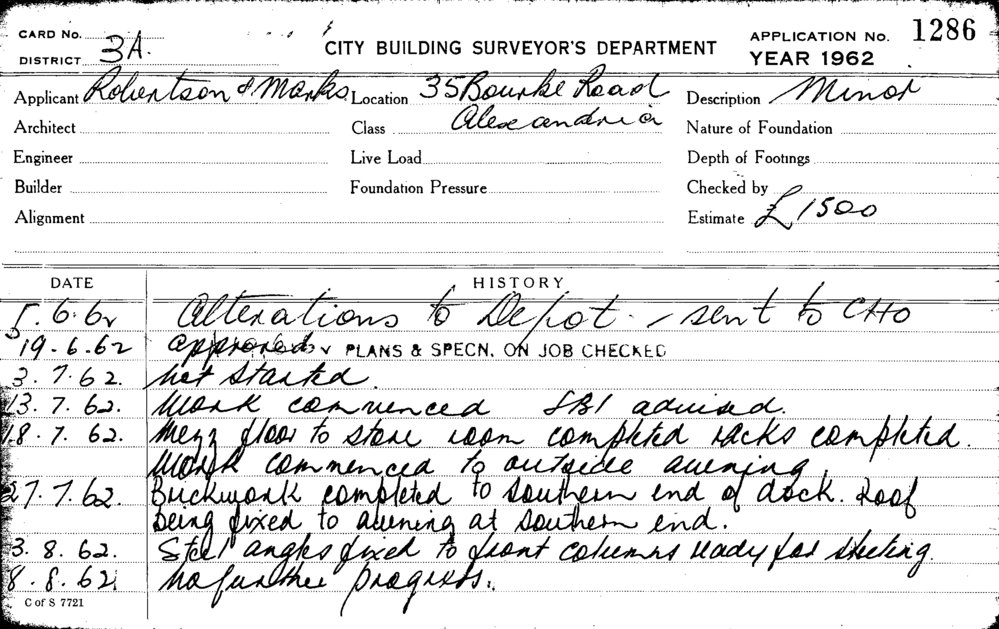 CARD No.
DISTRICT 3A.
CITY BUILDING SURVEYOR'S DEPARTMENT
APPLICATION No. 1286
YEAR 1962
Applicant Robertson & Marks Location 35 Bourke Road Description Minor
Architect Class Alexandria Nature of Foundation
Engineer Live Load Depth of Footings
Builder Foundation Pressure Checked by
Alignment Estimate £1500
DATE HISTORY
5.6.62 Alterations to Depot. - sent to CHO
19.6.62 approved PLANS & SPECN. ON JOB CHECKED
3.7.62. Not started.
13.7.62. Work commenced SBI advised.
18.7.62. Mezz floor to store room completed racks completed.
Work commenced to outside awning.
27.7.62. Brickwork completed to southern end of dock. Roof
being fixed to awning at southern end.
3.8.62. Steel angles fixed to front columns ready for sheeting.
8.8.62. No further progress.
C of S 7721